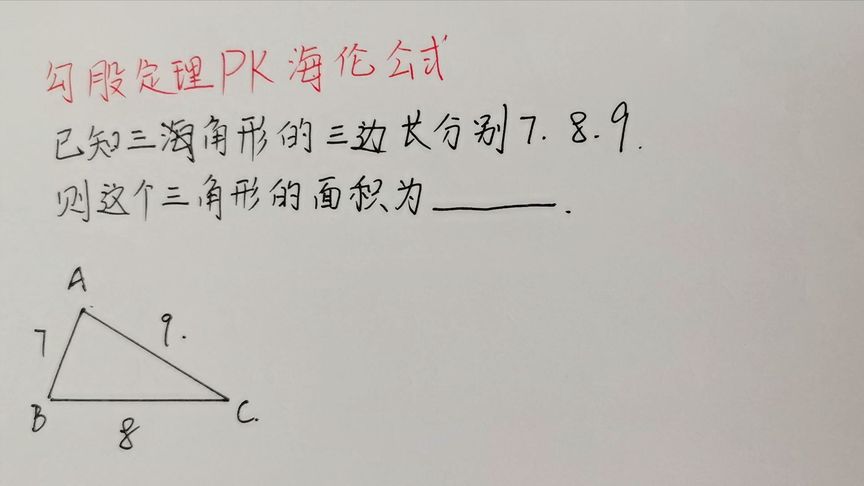 勾股定理PK海伦公式
已知三海角形的三边长分别7.8.9.
则这个三角形的面积为______.
A
7
9.
B
C.
8